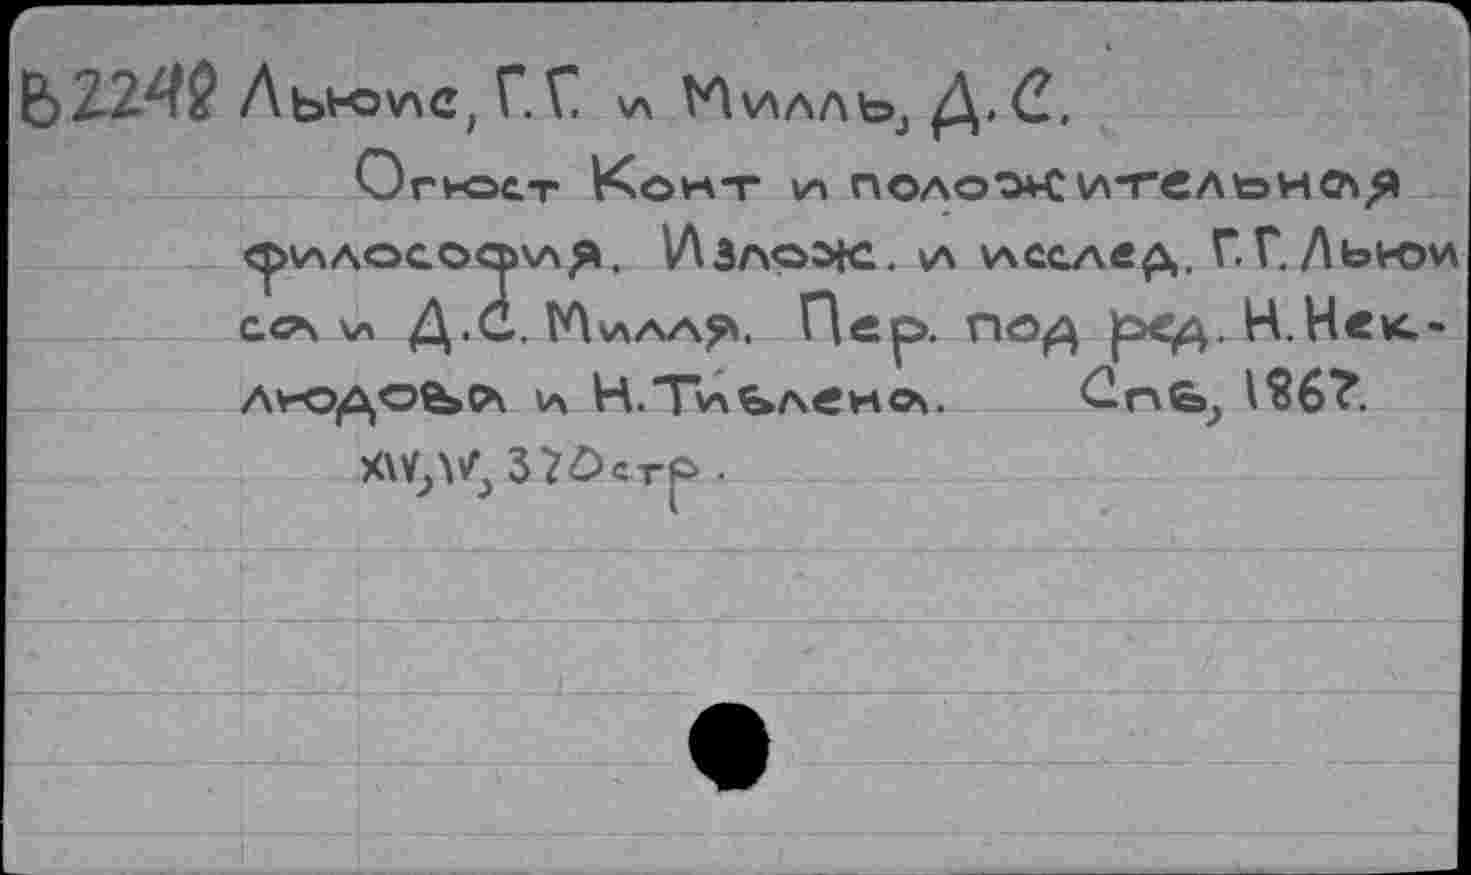 В2248 Льюис, Г.Г. и Милль, Д.С.
Огюст Конт и положительная
философия. Излож. и исслед. Г.Г. Льюи
са и Д.С. Милля. Пер. под ред. Н. Нек-
людова и Н. Тиблена. Спб, 1867.
XIV, IV, 370 стр.